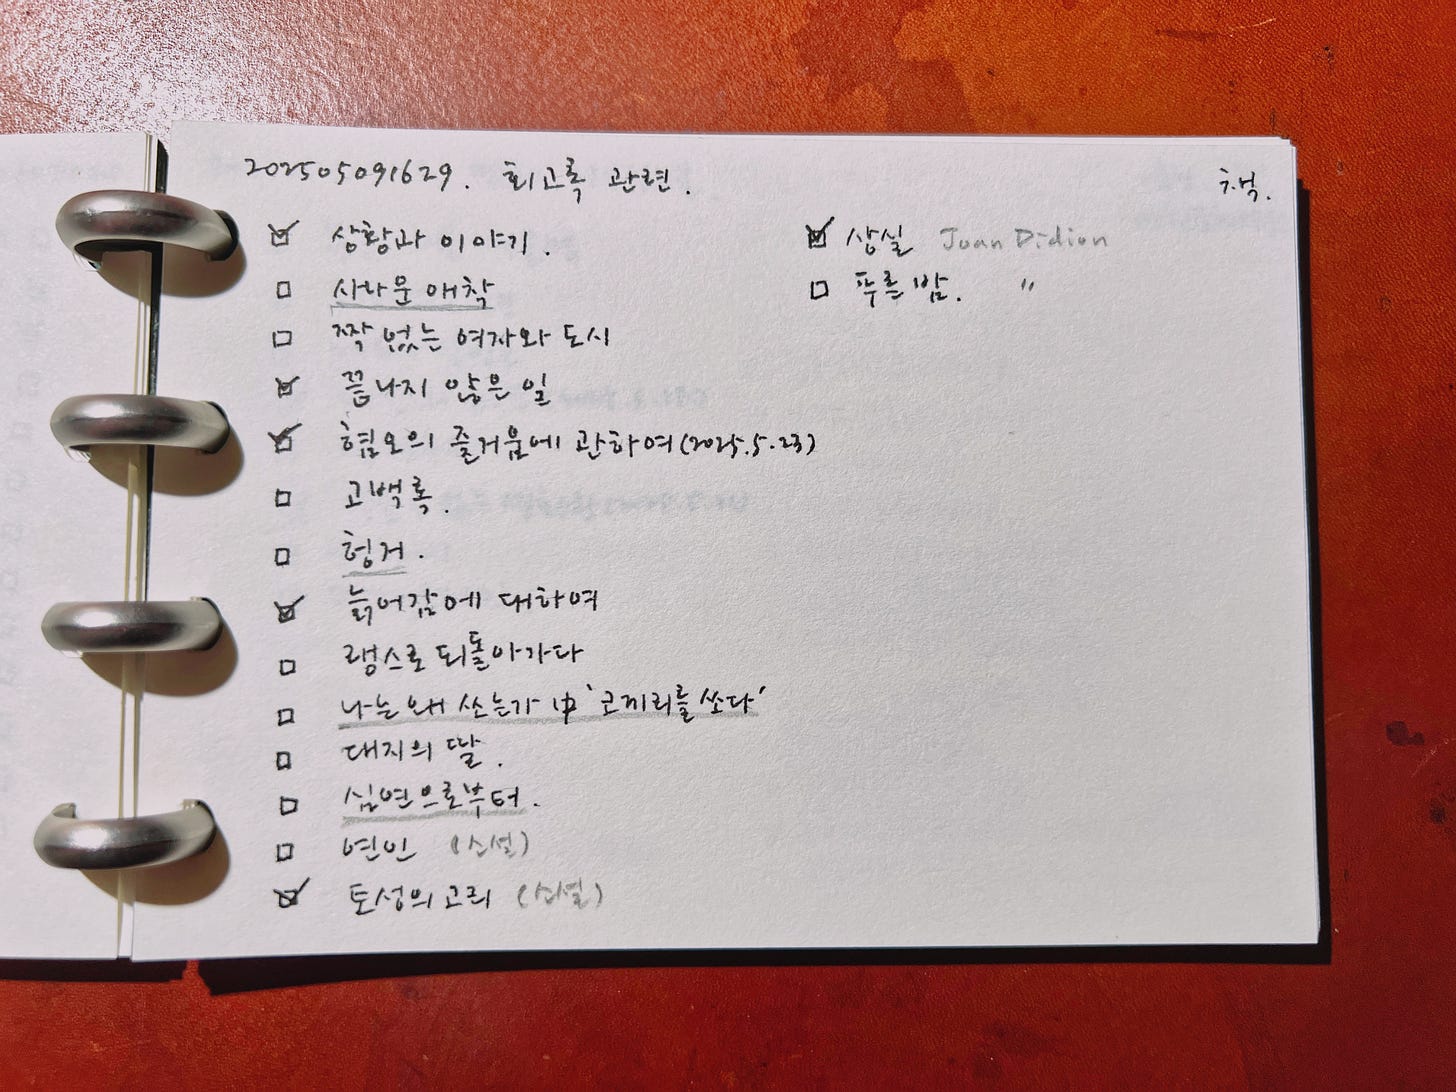 202505091629. 회고록 관련.
책.
☑ 상황과 이야기.
☐ 사나운 애착
☐ 짝 없는 여자와 도시
☑ 끝나지 않은 일
☑ 혐오의 즐거움에 관하여(2025.5.23)
☐ 고백록.
☐ 헝거.
☑ 늙어감에 대하여
☐ 랭스로 되돌아가다
☐ 나는 왜 쓰는가 中 '코끼리를 쏘다'
☐ 대지의 딸.
☐ 심연으로부터.
☐ 연인 (소설)
☑ 토성의 고리 (소설)
☑ 상실 Joan Didion
☐ 푸른 밤. "